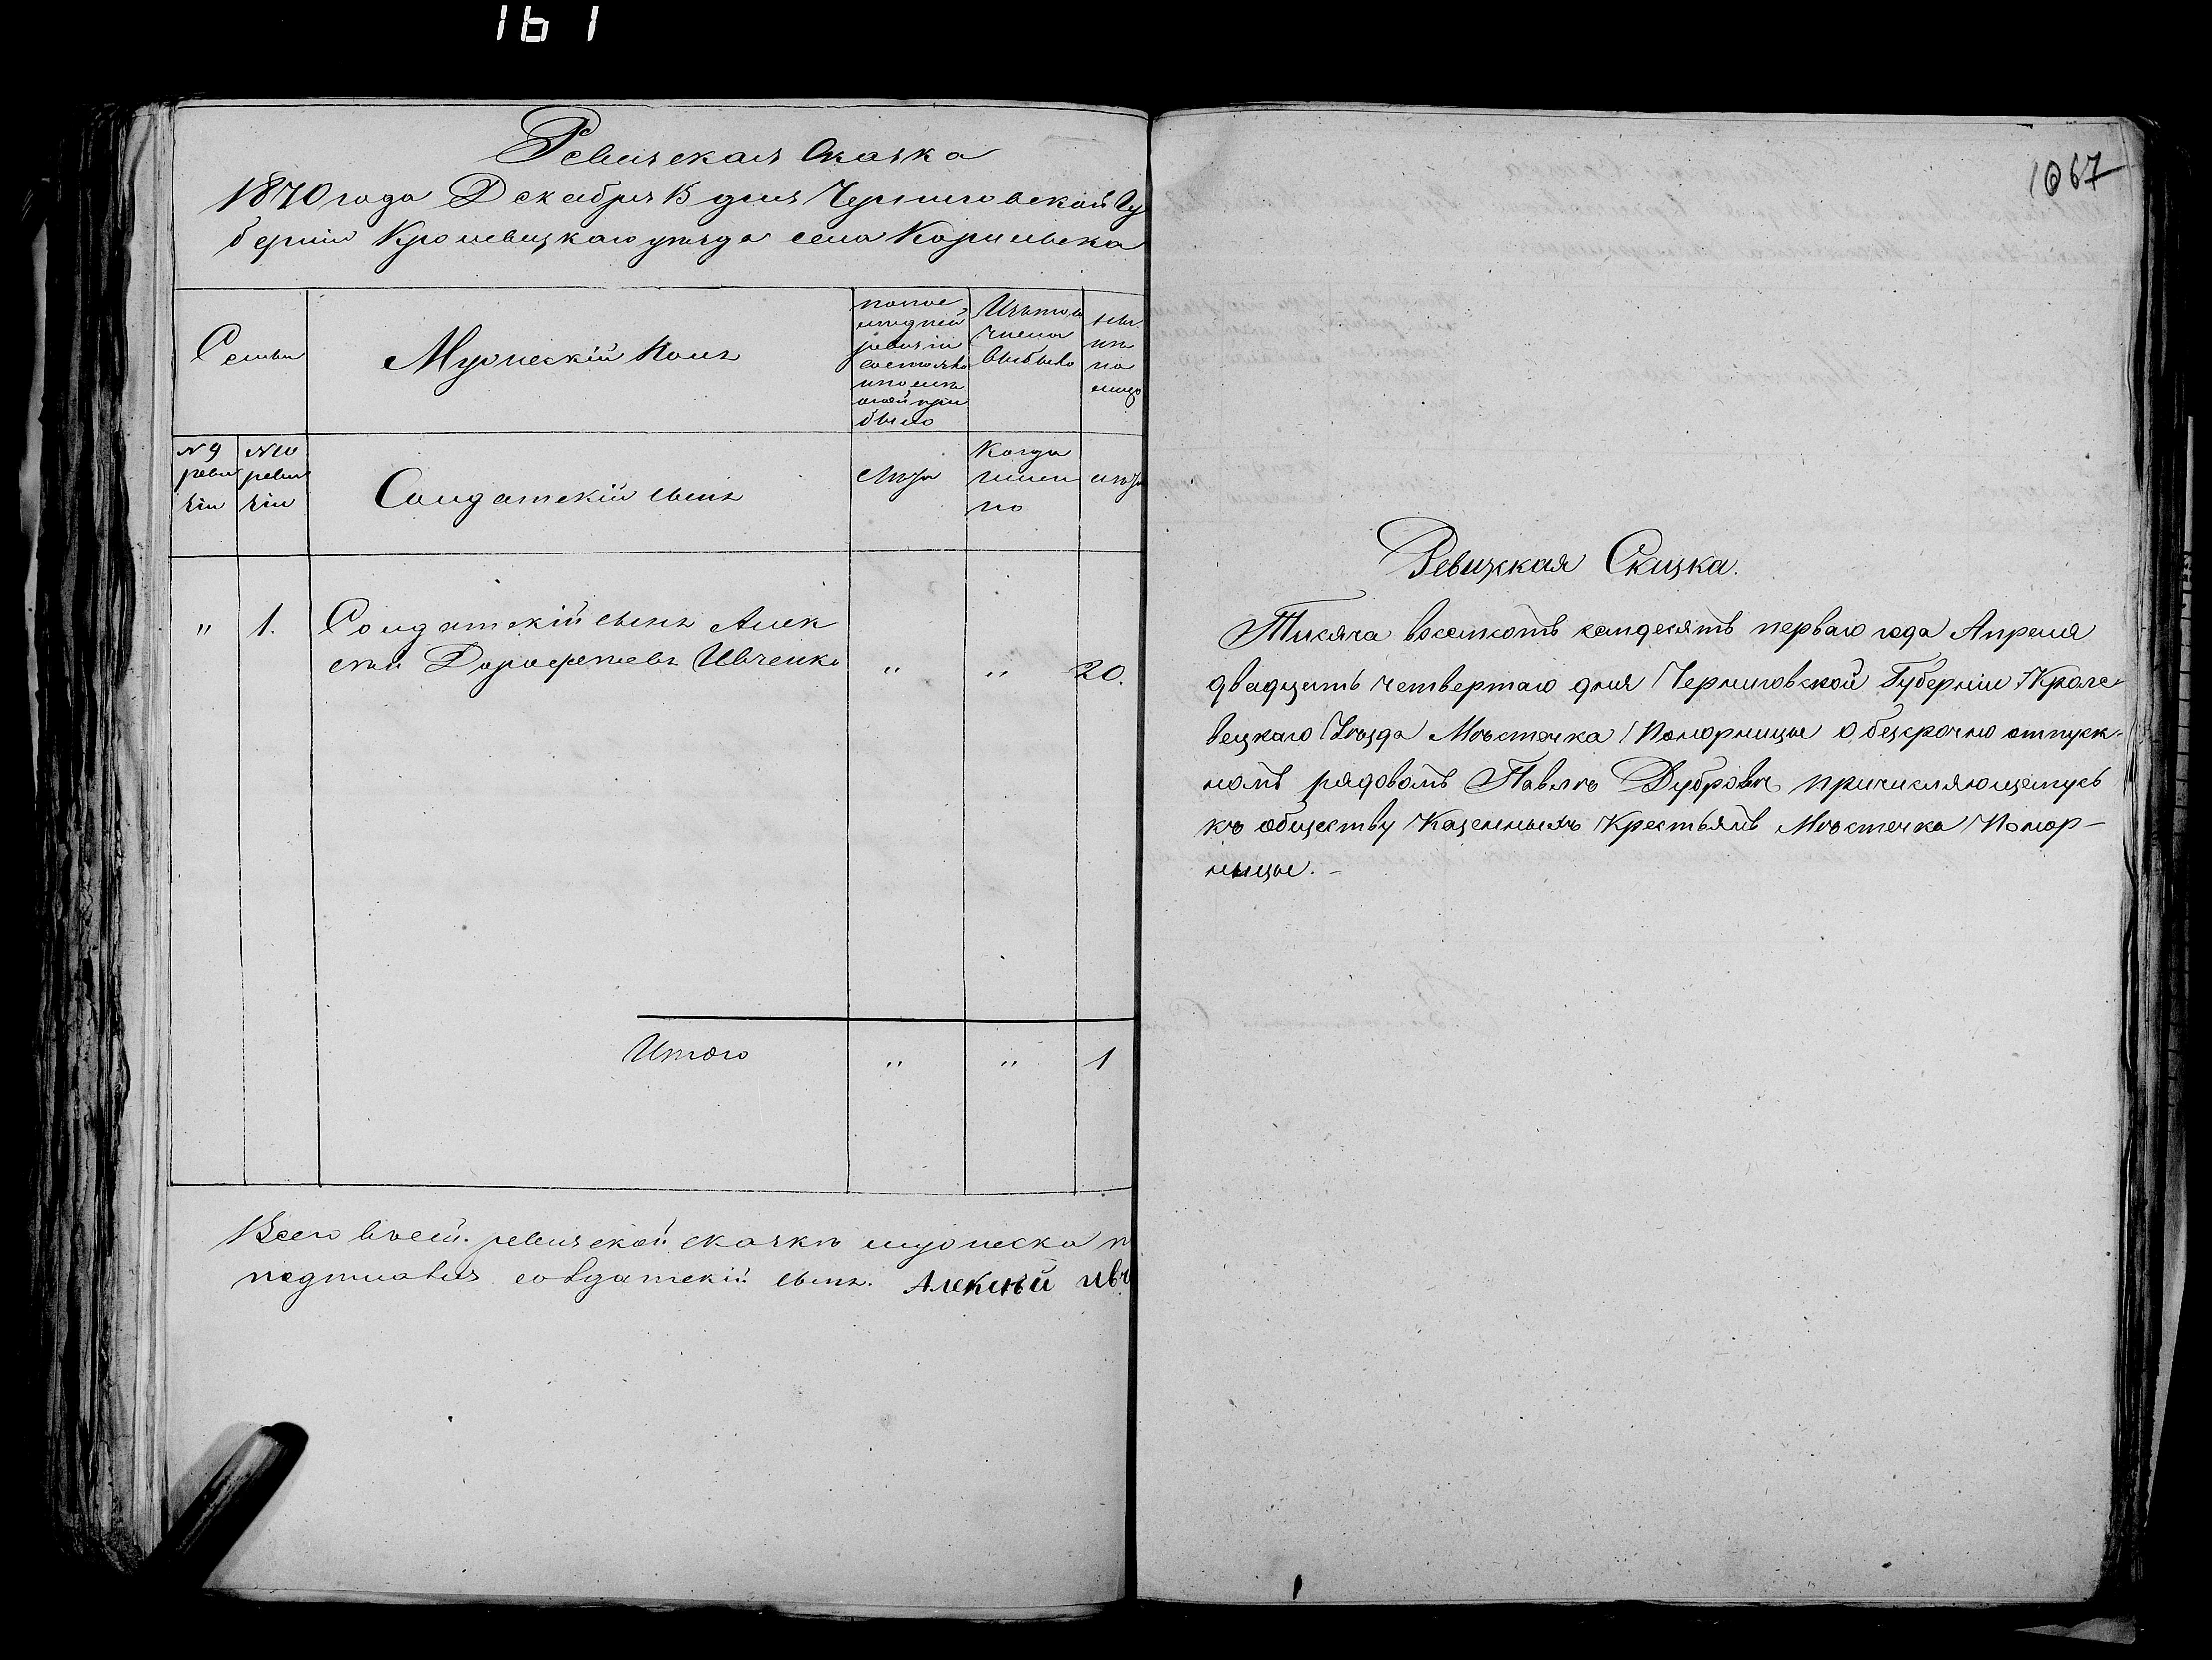 161
Ревизская Сказка
1870 года Декабря 15 дня Черниговской Гу
берніи Кролевецкаго уезда села
Семьи
Мужескій полъ
по пос
ледней
ревизіи
состояло
и после
оной при
было
Изъ того
числа
выбыло
ны
не
на
лицо
№ 9
реви
зіи
№ 10
реви
зіи
Солдатскій сынъ
лета
Когда
имен
но
лета
" 1. Солдатскій сынъ Алек
сѣй Дорофеевъ Ивченко " " 20.
Итого " " 1
Всего въ сей ревизской сказкѣ мужеска п
подписался солдатскій сынъ. Алексѣй Ивч
1067
Ревизская Сказка.
Тисяча восемсотъ семдесятъ перваго года Апреля
двадцать четвертаго дня Черниговской Губерніи Кроле-
вецкаго Уѣзда Мѣстечка Понорницы о безсрочно отпуск-
номъ рядовомъ Павлѣ Дубровѣ причисляющемусь
къ обществу Казенныхъ Крестьянъ Мѣстечка Понор-
ницы. -